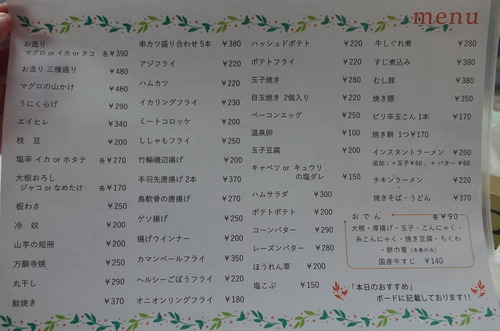 menu
お造り
マグロ or イカ or タコ 各¥390
お造り 三種盛り ¥480
マグロの山かけ ¥460
うにくらげ ¥290
エイヒレ ¥340
枝 豆 ¥200
塩辛 イカ or ホタテ 各¥270
大根おろし
ジャコ or なめたけ 各¥170
板わさ ¥250
冷 奴 ¥200
山芋の短冊 ¥200
万願寺焼 ¥250
丸干し ¥290
鮭焼き ¥370
串カツ盛り合わせ 5本 ¥380
アジフライ ¥220
ハムカツ ¥220
イカリングフライ ¥230
ミートコロッケ ¥200
ししゃもフライ ¥250
竹輪磯辺揚げ ¥200
手羽先唐揚げ 2本 ¥370
鳥軟骨の唐揚げ ¥270
ゲソ揚げ ¥250
揚げウインナー ¥200
カマンベールフライ ¥350
ヘルシーごぼうフライ ¥220
オニオンリングフライ ¥180
ハッシュドポテト ¥220
ポテトフライ ¥220
玉子焼き ¥280
目玉焼き 2個入り ¥220
ベーコンエッグ ¥250
温泉卵 ¥100
玉子豆腐 ¥200
キャベツ or キュウリ
の塩ダレ ¥150
ハムサラダ ¥300
ポテトポテト ¥200
コーンバター ¥290
レーズンバター ¥280
ほうれん草 ¥200
塩こぶ ¥150
牛しぐれ煮 ¥280
すじ煮込み ¥380
むし豚 ¥380
焼き豚 ¥350
ピリ辛玉こん 1本 ¥170
焼き餅 1つ¥170
インスタントラーメン ¥260
追加;+玉子¥60、+バター¥60
チキンラーメン ¥220
焼きそば・うどん ¥370
おでん 各¥90
大根・厚揚げ・玉子・こんにゃく・
糸こんにゃく・焼き豆腐・ちくわ
・餅巾着(冬季のみ)
国産牛すじ ¥140
「本日のおすすめ」
ボードに記載しております!!